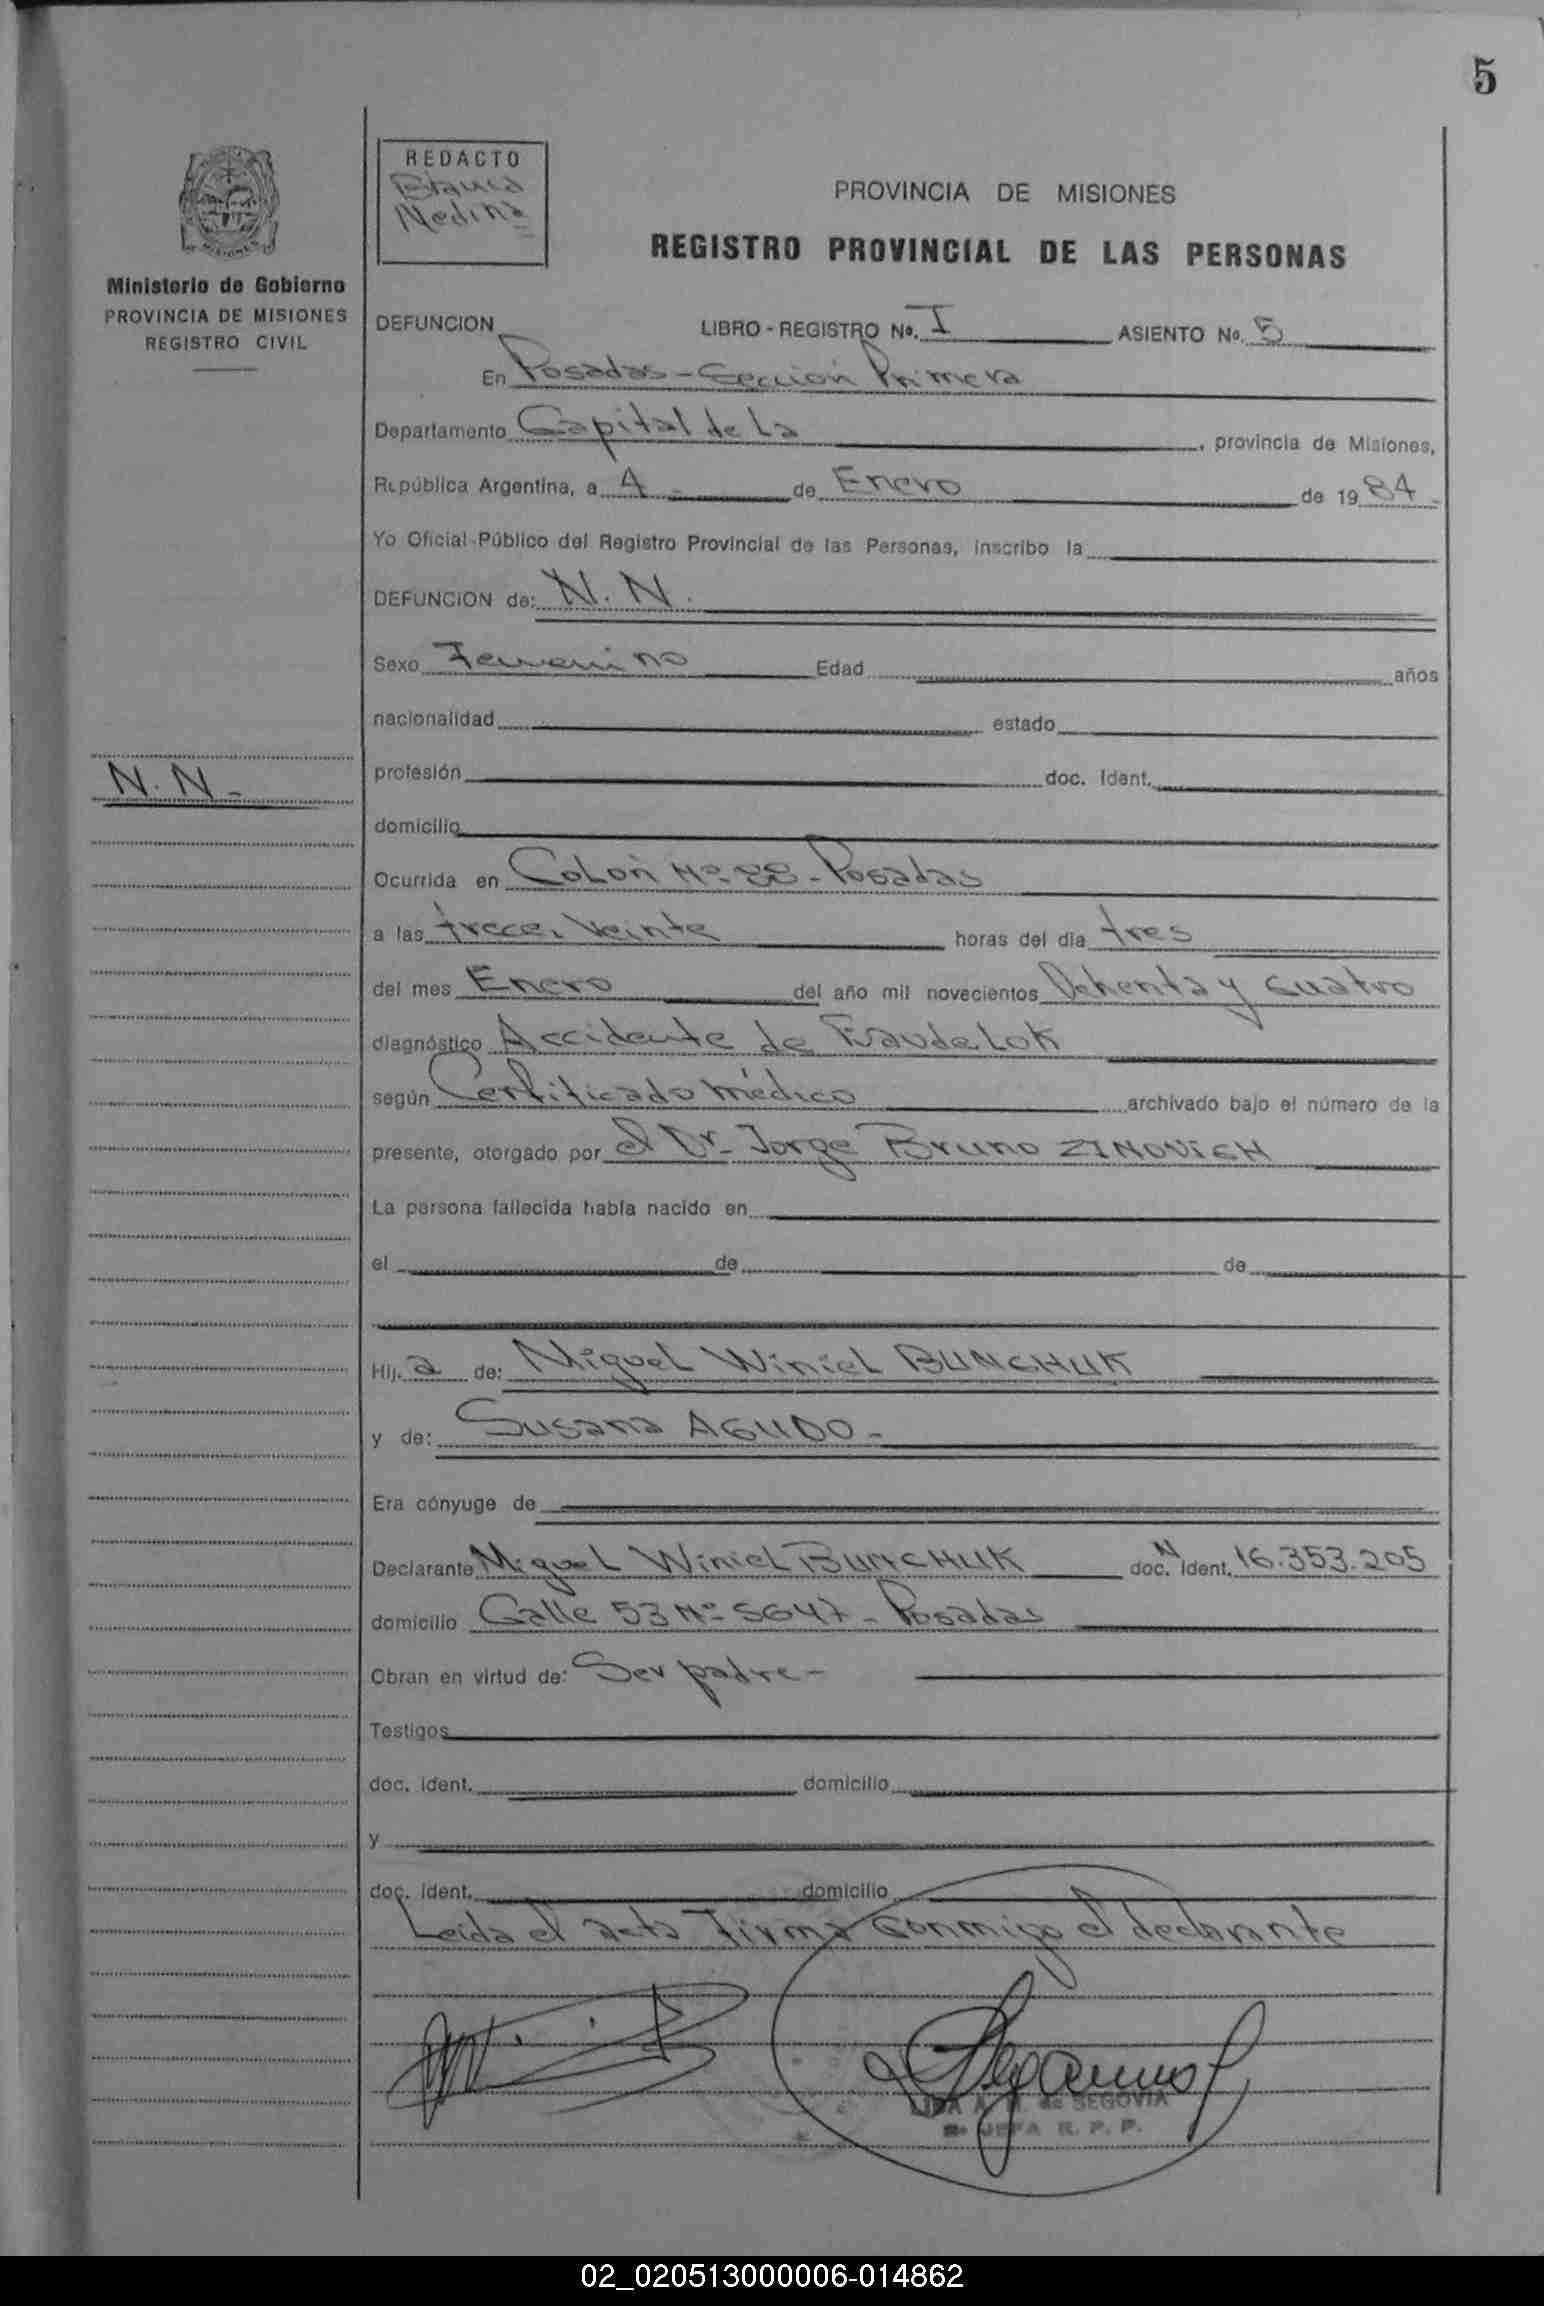 5
REDACTO
Blanca
Medina
MISIONES
Ministerio de Gobierno
PROVINCIA DE MISIONES
REGISTRO CIVIL
PROVINCIA DE MISIONES
REGISTRO PROVINCIAL DE LAS PERSONAS
DEFUNCION LIBRO - REGISTRO No. I ASIENTO No. 5
En Posadas - Sección Primera
Departamento Capital de La , provincia de Misiones,
República Argentina, a 4 - de Enero de 19 84 -
Yo Oficial Público del Registro Provincial de las Personas, inscribo la
DEFUNCION de: N. N.
Sexo Femenino Edad años
nacionalidad estado
N. N. -
profesión doc. Ident.
domicilio
Ocurrida en Colon Nº 88 - Posadas
a las trece, Veinte horas del día tres
del mes Enero del año mil novecientos Ochenta y cuatro
diagnóstico Accidente de Baudelok
según Certificado médico archivado bajo el número de la
presente, otorgado por el Dr. Jorge Bruno ZINOVICH
La persona fallecida había nacido en
el de de
Hij. a de: Miguel Winiel BUNCHUK
y de: Susana AGUDO -
Era cónyuge de
Declarante Miguel Winiel BUNCHUK doc. N Ident. 16.353.205
domicilio Calle 53 Nº 5647 - Posadas
Obran en virtud de: Ser padre -
Testigos
doc. ident. domicilio
y
doc. ident. domicilio
Leida el acta Firma conmigo el declarante
A. M. de SEGOVIA
JEFA R. P. P.
02_020513000006-014862